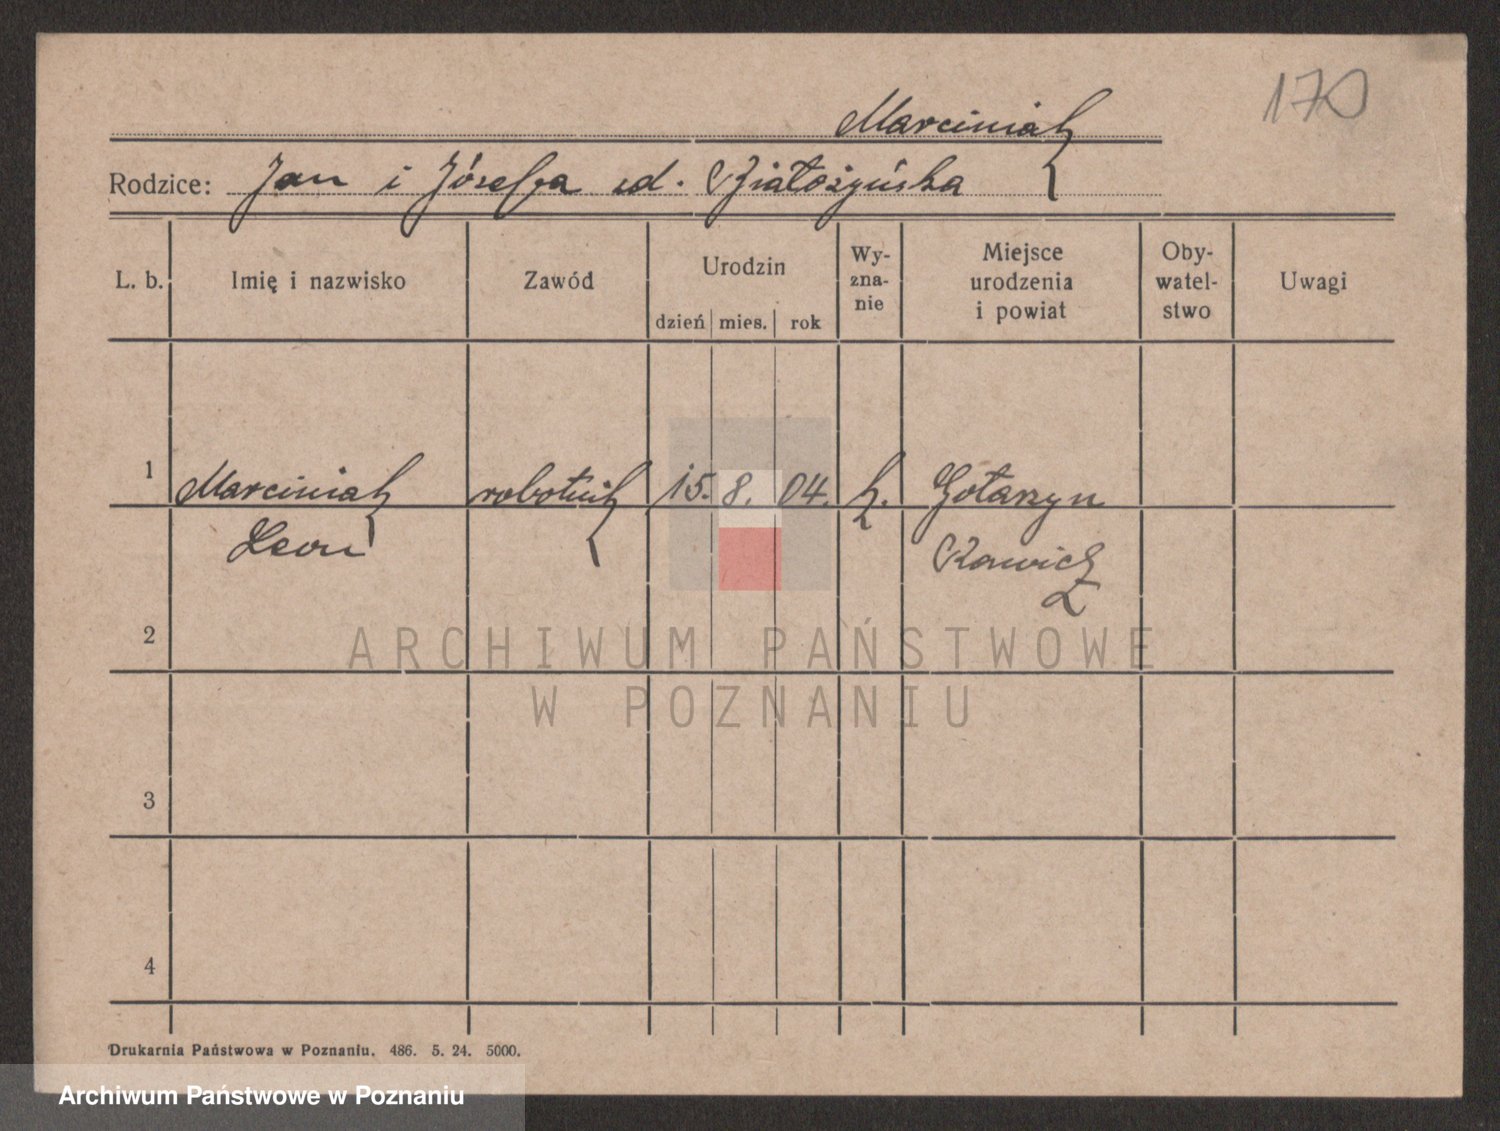 170
Marciniak
Rodzice: Jan i Józefa zd. Białożyńska
L. b. Imię i nazwisko Zawód Urodzin dzień mies. rok Wy-zna-nie Miejsce urodzenia i powiat Oby-watel-stwo Uwagi
1 Marciniak robotnik 15. 8. 04. k. Gołaszyn
Leon Rawicz
2
ARCHIWUM PAŃSTWOWE
W POZNANIU
3
4
Drukarnia Państwowa w Poznaniu. 486. 5. 24. 5000.
Archiwum Państwowe w Poznaniu